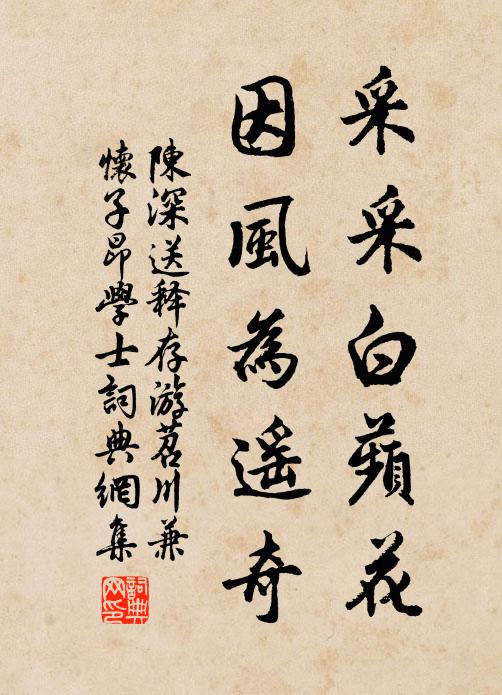 采采白蘋花
因風為遥奇
陳深送释存游苕川兼
懷子昂學士詞典網集
詞典網印